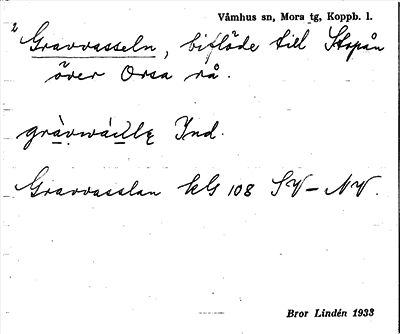 Våmhus sn, Mora tg, Koppb. l.
2 Gravvasseln, biflöde till Stopån
över Orsa rå.
Ind.
Gravvasslan kG 108 SV–NV.
Bror Lindén 1933